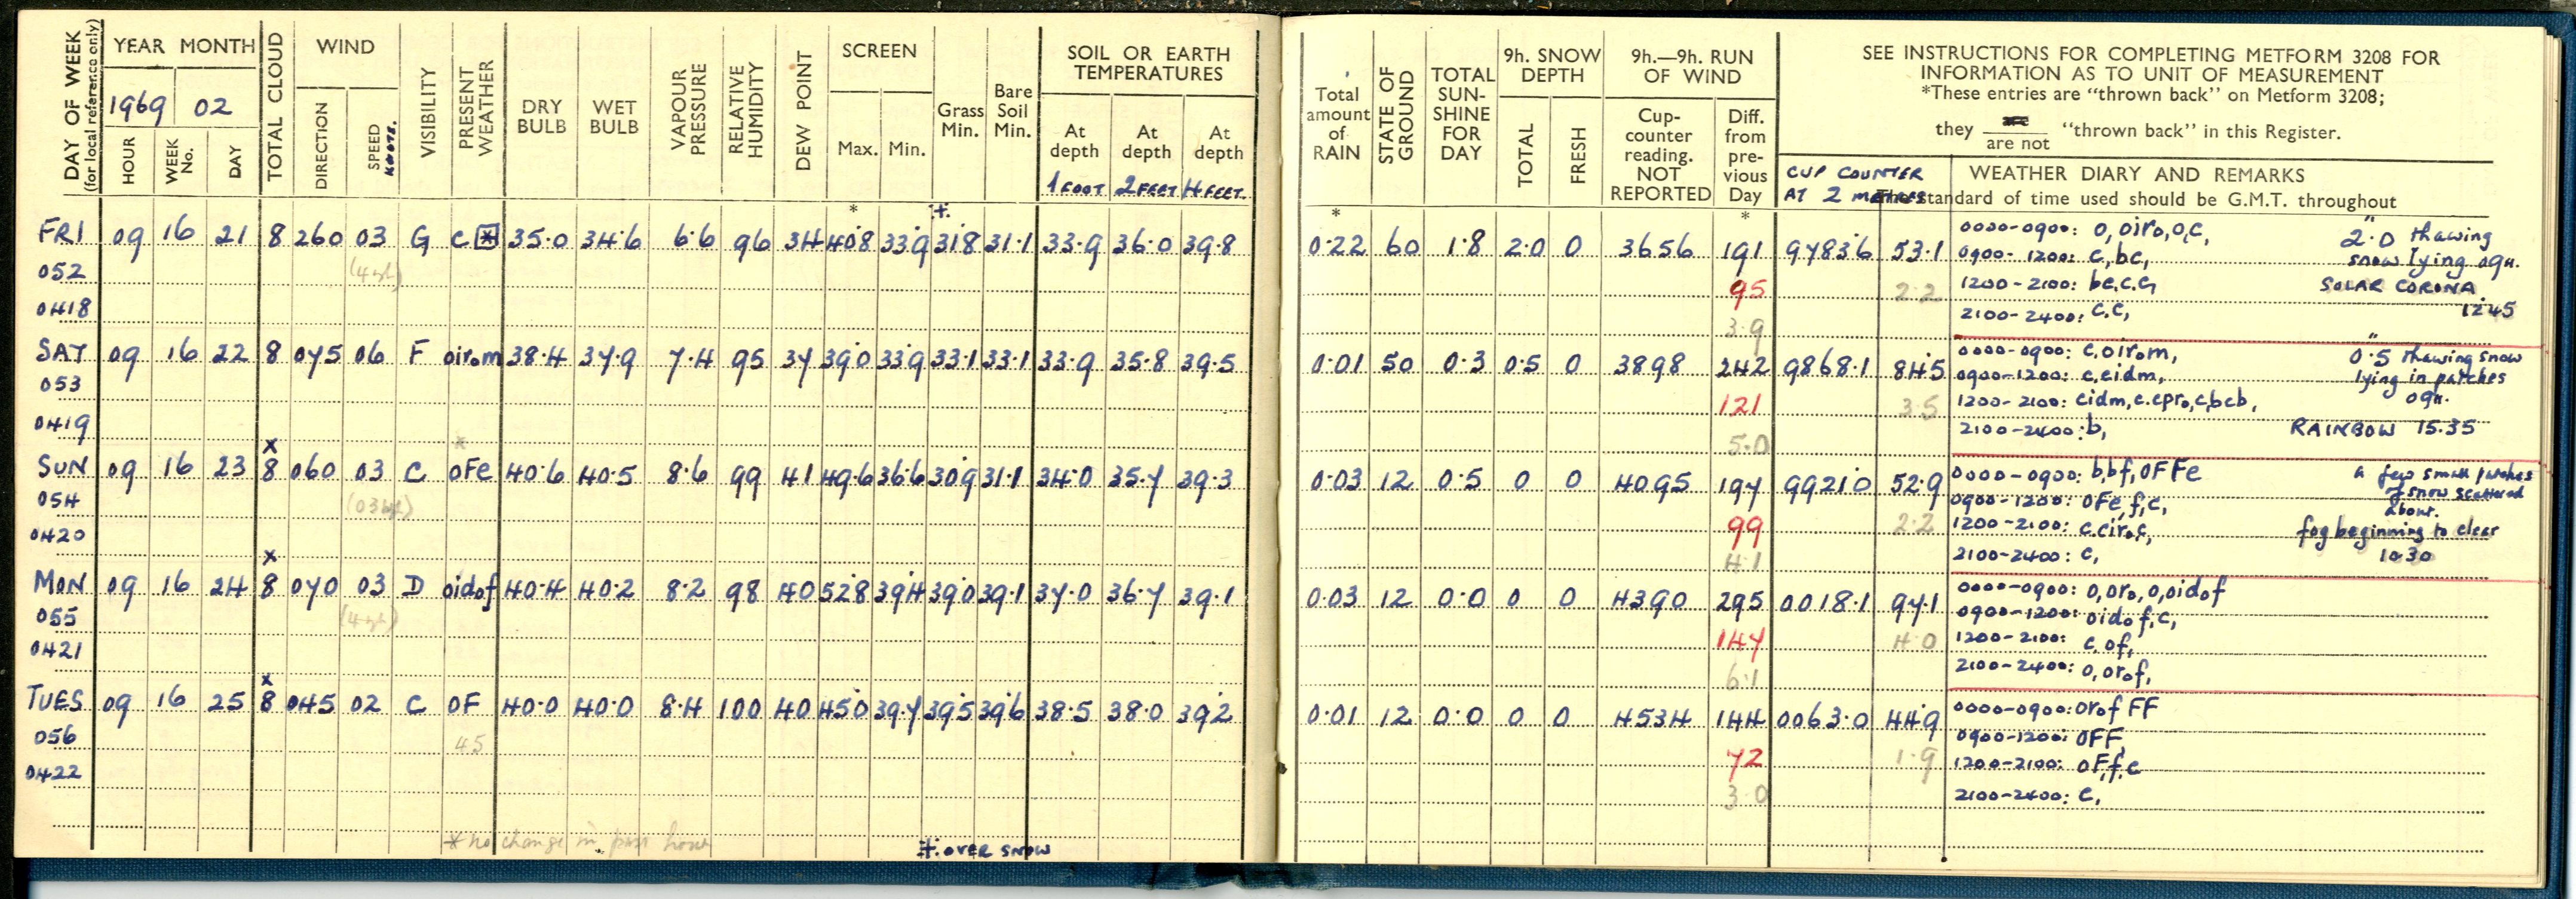 DAY OF WEEK
(for local reference only)
YEAR MONTH
1969 02
HOUR
WEEK No.
DAY
TOTAL CLOUD
WIND
DIRECTION
SPEED KNOTS.
VISIBILITY
PRESENT WEATHER
DRY BULB
WET BULB
VAPOUR PRESSURE
RELATIVE HUMIDITY
DEW POINT
SCREEN
Max.
Min.
Grass Min.
Bare Soil Min.
SOIL OR EARTH TEMPERATURES
At depth 1 FOOT
At depth 2 FEET
At depth 4 FEET.
Total amount of RAIN
STATE OF GROUND
TOTAL SUN-SHINE FOR DAY
9h. SNOW DEPTH
TOTAL
FRESH
9h.—9h. RUN OF WIND
Cup-counter reading. NOT REPORTED
Diff. from pre-vious Day
SEE INSTRUCTIONS FOR COMPLETING METFORM 3208 FOR
INFORMATION AS TO UNIT OF MEASUREMENT
*These entries are "thrown back" on Metform 3208;
they are / are not "thrown back" in this Register.
CUP COUNTER
AT 2 METRES
WEATHER DIARY AND REMARKS
The standard of time used should be G.M.T. throughout
* ‡. * *
FRI 09 16 21 8 260 03 G c * 35.0 34.6 6.6 96 34 40.8 33.9 31.8 31.1 33.9 36.0 39.8 0.22 60 1.8 2.0 0 3656 191 9783.6 53.1
0000-0900: o,oiro,o,c,
2.0" thawing
0900-1200: c,bc,
snow lying 09H.
052 95 2.2
1200-2100: bc.c.c,
SOLAR CORONA
0418 3.9
2100-2400: c.c,
12.45
SAT 09 16 22 8 075 06 F oirom 38.4 37.9 7.4 95 37 39.0 33.9 33.1 33.1 33.9 35.8 39.5 0.01 50 0.3 0.5 0 3898 242 9868.1 84.5
0000-0900: c,oirom,
0.5" thawing snow
0900-1200: c,cidm,
lying in patches
053 121 3.5
09H.
1200-2100: cidm,c.cpro,c,bcb,
0419 * 5.0
2100-2400: b,
RAINBOW 15.35
x
SUN 09 16 23 8 060 03 C oFe 40.6 40.5 8.6 99 41 49.6 36.6 30.9 31.1 34.0 35.7 39.3 0.03 12 0.5 0 0 4095 197 9921.0 52.9
0000-0900: b,bf,oFFe
a few small patches
of snow scattered
about.
0900-1200: oFe,f,c,
054 99 2.2
1200-2100: c.ciro,c,
fog beginning to clear
0420 4.1
2100-2400: c,
10.30
x
MON 09 16 24 8 070 03 D oidof 40.4 40.2 8.2 98 40 52.8 39.4 39.0 39.1 37.0 36.7 39.1 0.03 12 0.0 0 0 4390 295 0018.1 97.1
0000-0900: o,oro,o,oidof
0900-1200: oidof,c,
055 147 4.0
1200-2100: c,of,
0421 6.1
2100-2400: o,orof,
x
TUES 09 16 25 8 045 02 C oF 40.0 40.0 8.4 100 40 45.0 39.7 39.5 39.6 38.5 38.0 39.2 0.01 12 0.0 0 0 4534 144 0063.0 44.9
0000-0900: orof FF
0900-1200: oFF,
056 45 72 1.9
1200-2100: oF,f,c
0422 3.0
2100-2400: c,
* no change in past hour
‡. OVER SNOW